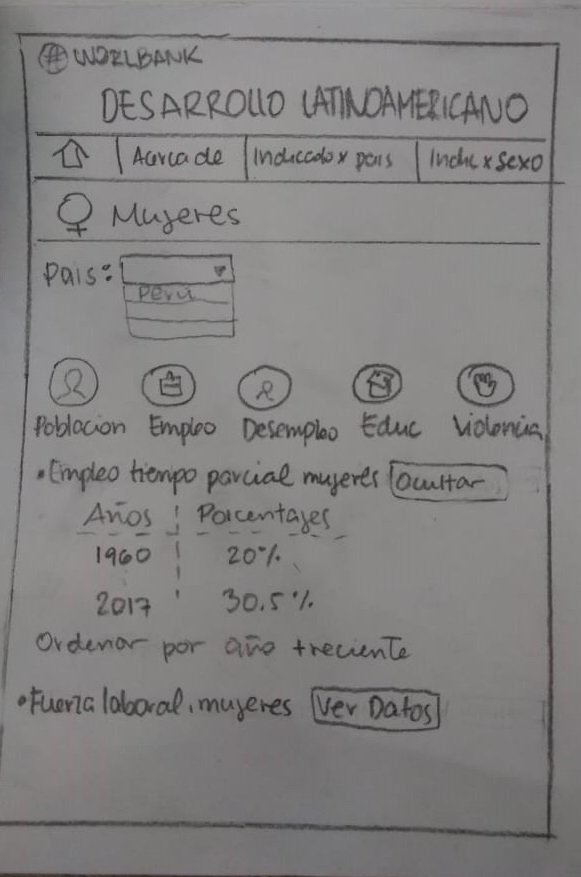 WORLBANK
DESARROLLO LATINOAMERICANO
Acerca de | Indiccado x pais | Indic x sexo
Mujeres
Pais:
Perú
Poblacion Empleo Desempleo Educ Violencia
•Empleo tiempo parcial mujeres Ocultar
Años Porcentajes
1960 20%
2017 30.5%
Ordenar por año + reciente
•Fuerza laboral, mujeres Ver Datos